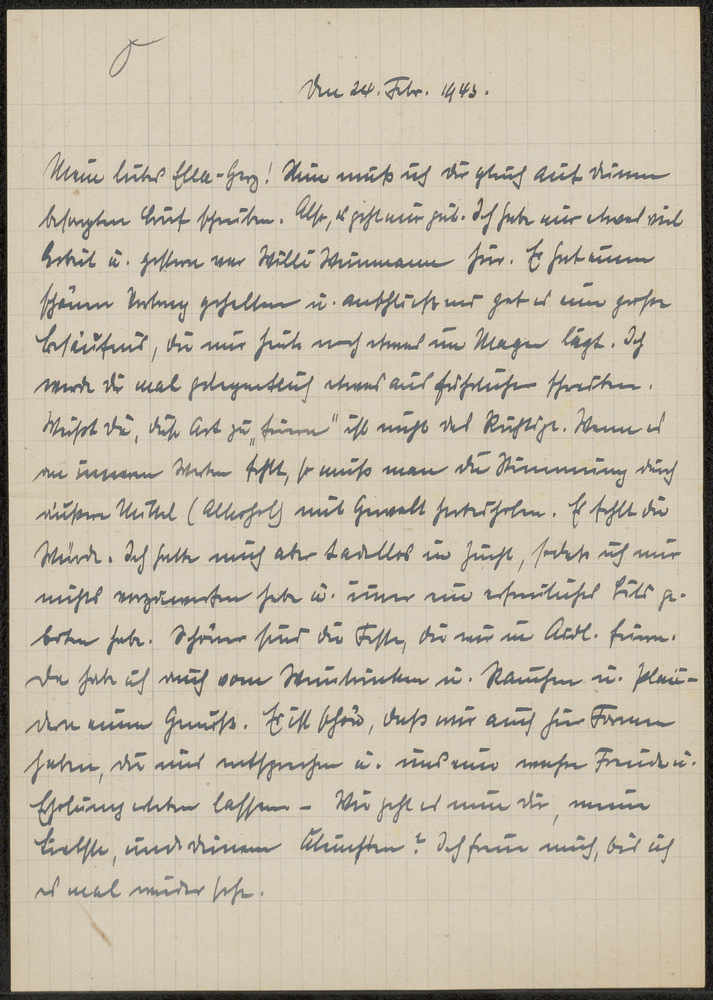 Den 24. Febr. 1943.
Mein liebes Ella-Herz! Nun muß ich dir gleich auf deinen
besorgten Brief schreiben. Also, es geht mir gut. Ich habe nur etwas viel
Arbeit u. gestern war Willi Weinmann hier. Er hat einen
schönen Vortrag gehalten u. anschließend gab es eine große
Besäufnis, die mir heute noch etwas im Magen liegt. Ich
werde dir mal gelegentlich etwas ausführlicher schreiben.
Weißt du, diese Art zu „feiern" ist nicht das Richtige. Wenn es
an inneren Werten fehlt, so muß man die Stimmung durch
äußere Mittel (Alkohol) mit Gewalt herbeiholen. Es fehlt die
Würde. Ich hatte mich aber tadellos in Zucht, sodaß ich mir
nichts vorzuwerfen habe u. immer ein erfreuliches Bild ge-
boten habe. Schöner sind die Feste, die wir in feiern.
Da habe ich auch vom Weintrinken u. Rauchen u. Plau-
dern einen Genuß. Es ist schön, daß wir auch hier Formen
haben, die uns entsprechen u. uns eine wahre Freude u.
Erholung lassen – Wie geht es nun dir, meine
Liebste, und deinem ? Ich freue mich, bis ich
es mal wieder sehe.